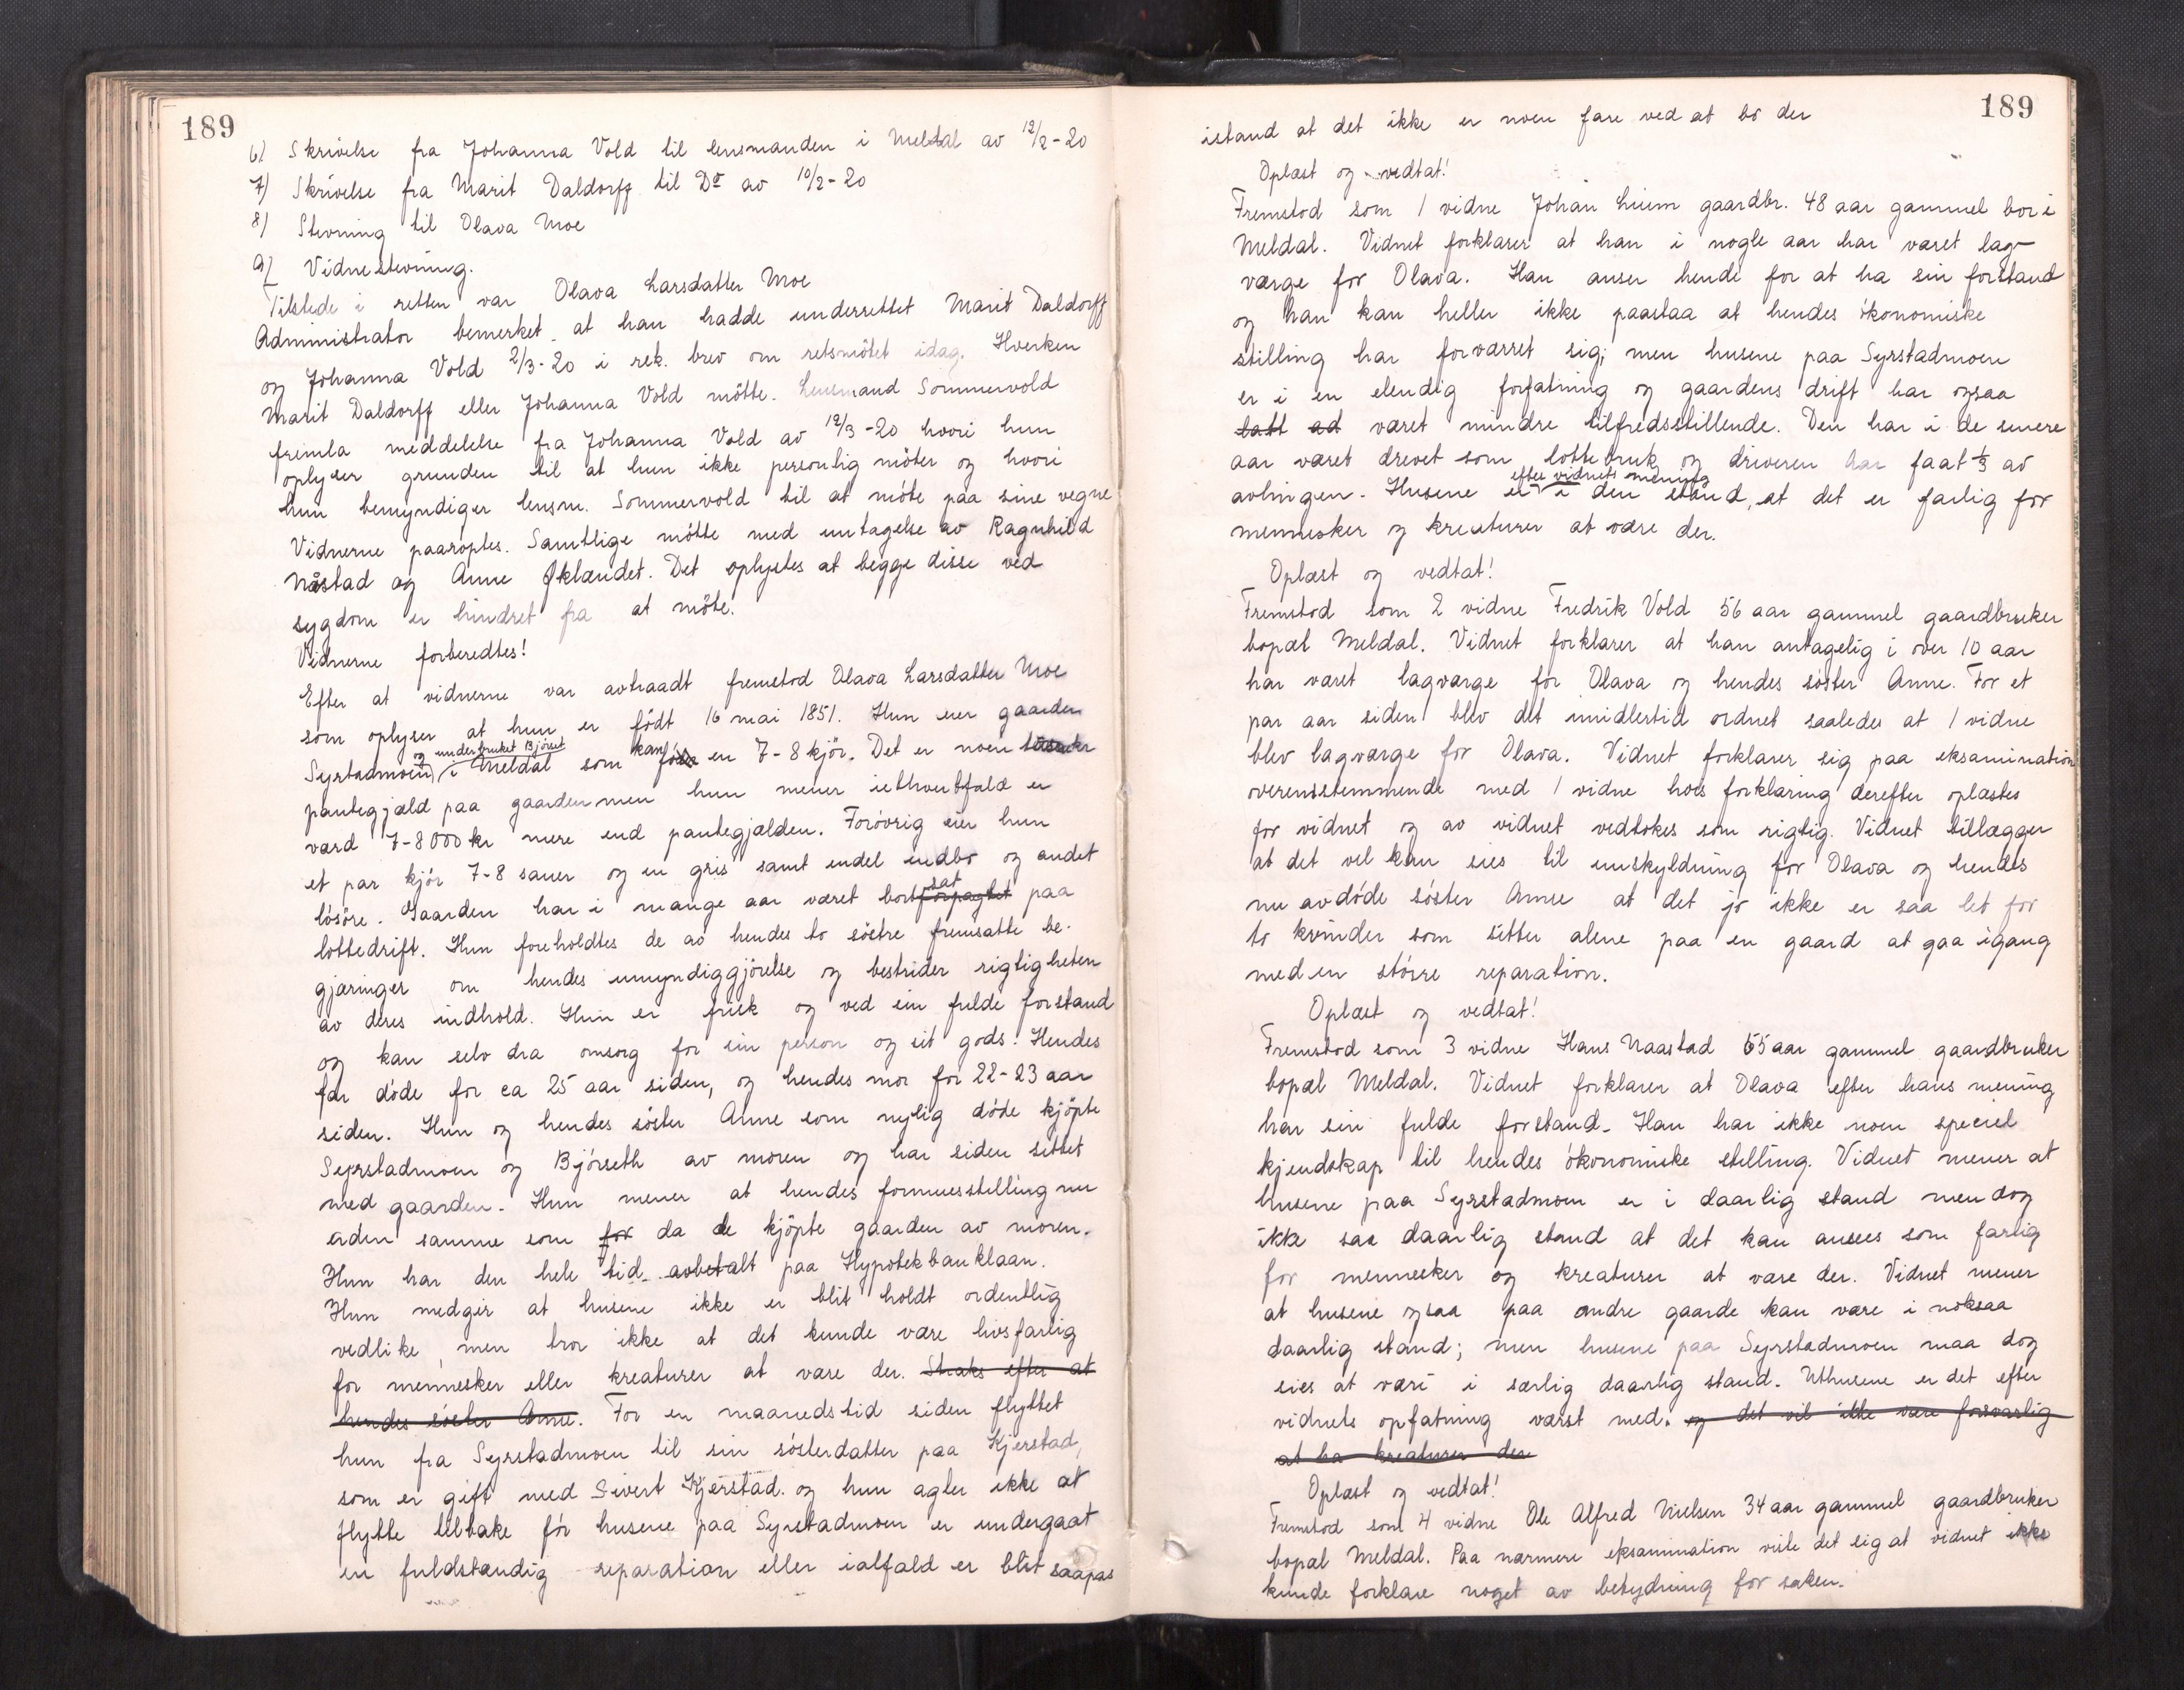 189
6) Skrivelse fra Johanna Vold til lensmanden i Meldal av 12/2-20
7) Skrivelse fra Marit Daldorff til Do av 10/2-20
8) Stevning til Olava Moe
9) Vidnestevning.
Tilstede i retten var Olava Larsdatter Moe
Administrator bemerket at han hadde underrettet Marit Daldorff
og Johanna Vold 2/3-20 i rek. brev om retsmötet idag. Hverken
Marit Daldorff eller Johanna Vold mötte. Lensmand Sommervold
fremla meddelelse fra Johanna Vold av 12/3-20 hvori hun
oplyser grunden til at hun ikke personlig möter og hvori
hun bemyndiger lensm. Sommervold til at möte paa sine vegne
Vidnerne paaroptes. Samtlige mötte med undtagelse av Ragnhild
Nåstad og Anne Öklandet. Det oplystes at begge disse ved
sygdom er hindret fra at möte.
Vidnerne forberedtes!
Efter at vidnerne var avtraadt fremstod Olava Larsdatter Moe
som oplyser at hun er födt 16 mai 1851. Hun eier gaarden
Syrstadmoen og underbruket Björet i Meldal som kan före en 7-8 kjör. Det er noen
pantegjæld paa gaarden men hun mener iethvertfald er
værd 7-8000 kr mere end pantegjælden. Forövrig eier hun
et par kjör 7-8 sauer og en gris samt endel indbo og andet
lösöre. Gaarden har i mange aar været bortforpagtet sat paa
lottedrift. Hun foreholdtes de av hendes to söstre fremsatte be-
gjæringer om hendes umyndiggjörelse og bestrider rigtigheten
av deres indhold. Hun er frisk og ved sin fulde forstand
og kan selv dra omsorg for sin person og sit gods. Hendes
far döde for ca 25 aar siden, og hendes mor for 22-23 aar
siden. Hun og hendes söster Anne som nylig döde kjöpte
Syrstadmoen og Björseth av moren og har siden sittet
med gaarden. Hun mener at hendes formuesstilling nu
er den samme som for da de kjöpte gaarden av moren.
Hun har den hele tid avbetalt paa Hypotekbanklaan.
Hun medgir at husene ikke er blit holdt ordentlig
vedlike, men tror ikke at det kunde være livsfarlig
for mennesker eller kreaturer at være der. Straks efter at
hendes söster Anne. For en maanedstid siden flyttet
hun fra Syrstadmoen til sin sösterdatter paa Kjerstad,
som er gift med Sivert Kjerstad. og hun agter ikke at
flytte tilbake för husene paa Syrstadmoen er undergaat
en fuldstændig reparation eller ialfald er blit saapas
189
istand at det ikke er noen fare ved at bo der
Oplæst og vedtat!
Fremstod som 1 vidne Johan Liiem gaardbr. 48 aar gammel bor i
Meldal. Vidnet forklarer at han i nogle aar har været lag-
værge for Olava. Han anser hende for at ha sin forstand
og han kan heller ikke paastaa at hendes ökonomiske
stilling har forværret sig; men husene paa Syrstadmoen
er i en elendig forfatning og gaardens drift har ogsaa
latt ad været mindre tilfredsstillende. Den har i de senere
aar været drevet som lottebruk og driveren har faat 1/3 av
avlingen. Husene er efter vidnets mening i den stand, at det er farlig for
mennesker og kreaturer at være der.
Oplæst og vedtat!
Fremstod som 2 vidne Fredrik Vold 56 aar gammel gaardbruker
bopæl Meldal. Vidnet forklarer at han antagelig i over 10 aar
har været lagværge for Olava og hendes söster Anne. For et
par aar siden blev det imidlertid ordnet saaledes at 1 vidne
blev lagværge for Olava. Vidnet forklarer sig paa eksamination
overensstemmende med 1 vidne hvis forklaring derefter oplæstes
for vidnet og av vidnet vedtokes som rigtig. Vidnet tillægger
at det vel kan sies til undskyldning for Olava og hendes
nu avdöde söster Anne at det jo ikke er saa let for
to kvinder som sitter alene paa en gaard at gaa igang
med en större reparation.
Oplæst og vedtat!
Fremstod som 3 vidne Hans Naastad 55 aar gammel gaardbruker
bopæl Meldal. Vidnet forklarer at Olava efter hans mening
har sin fulde forstand. Han har ikke noen speciel
kjendskap til hendes ökonomiske stilling. Vidnet mener at
husene paa Syrstadmoen er i daarlig stand men dog
ikke saa daarlig stand at det kan ansees som farlig
for mennesker og kreaturer at være der. Vidnet mener
at husene ogsaa paa andre gaarde kan være i noksaa
daarlig stand; men husene paa Syrstadmoen maa dog
sies at være i særlig daarlig stand. Uthusene er det efter
vidnets opfatning værst med. og det vil ikke være forsvarlig
at ha kreaturer der
Oplæst og vedtat!
Fremstod som 4 vidne Ole Alfred Nielsen 34 aar gammel gaardbruker
bopæl Meldal. Paa nærmere eksamination viste det sig at vidnet ikke
kunde forklare noget av betydning for saken.